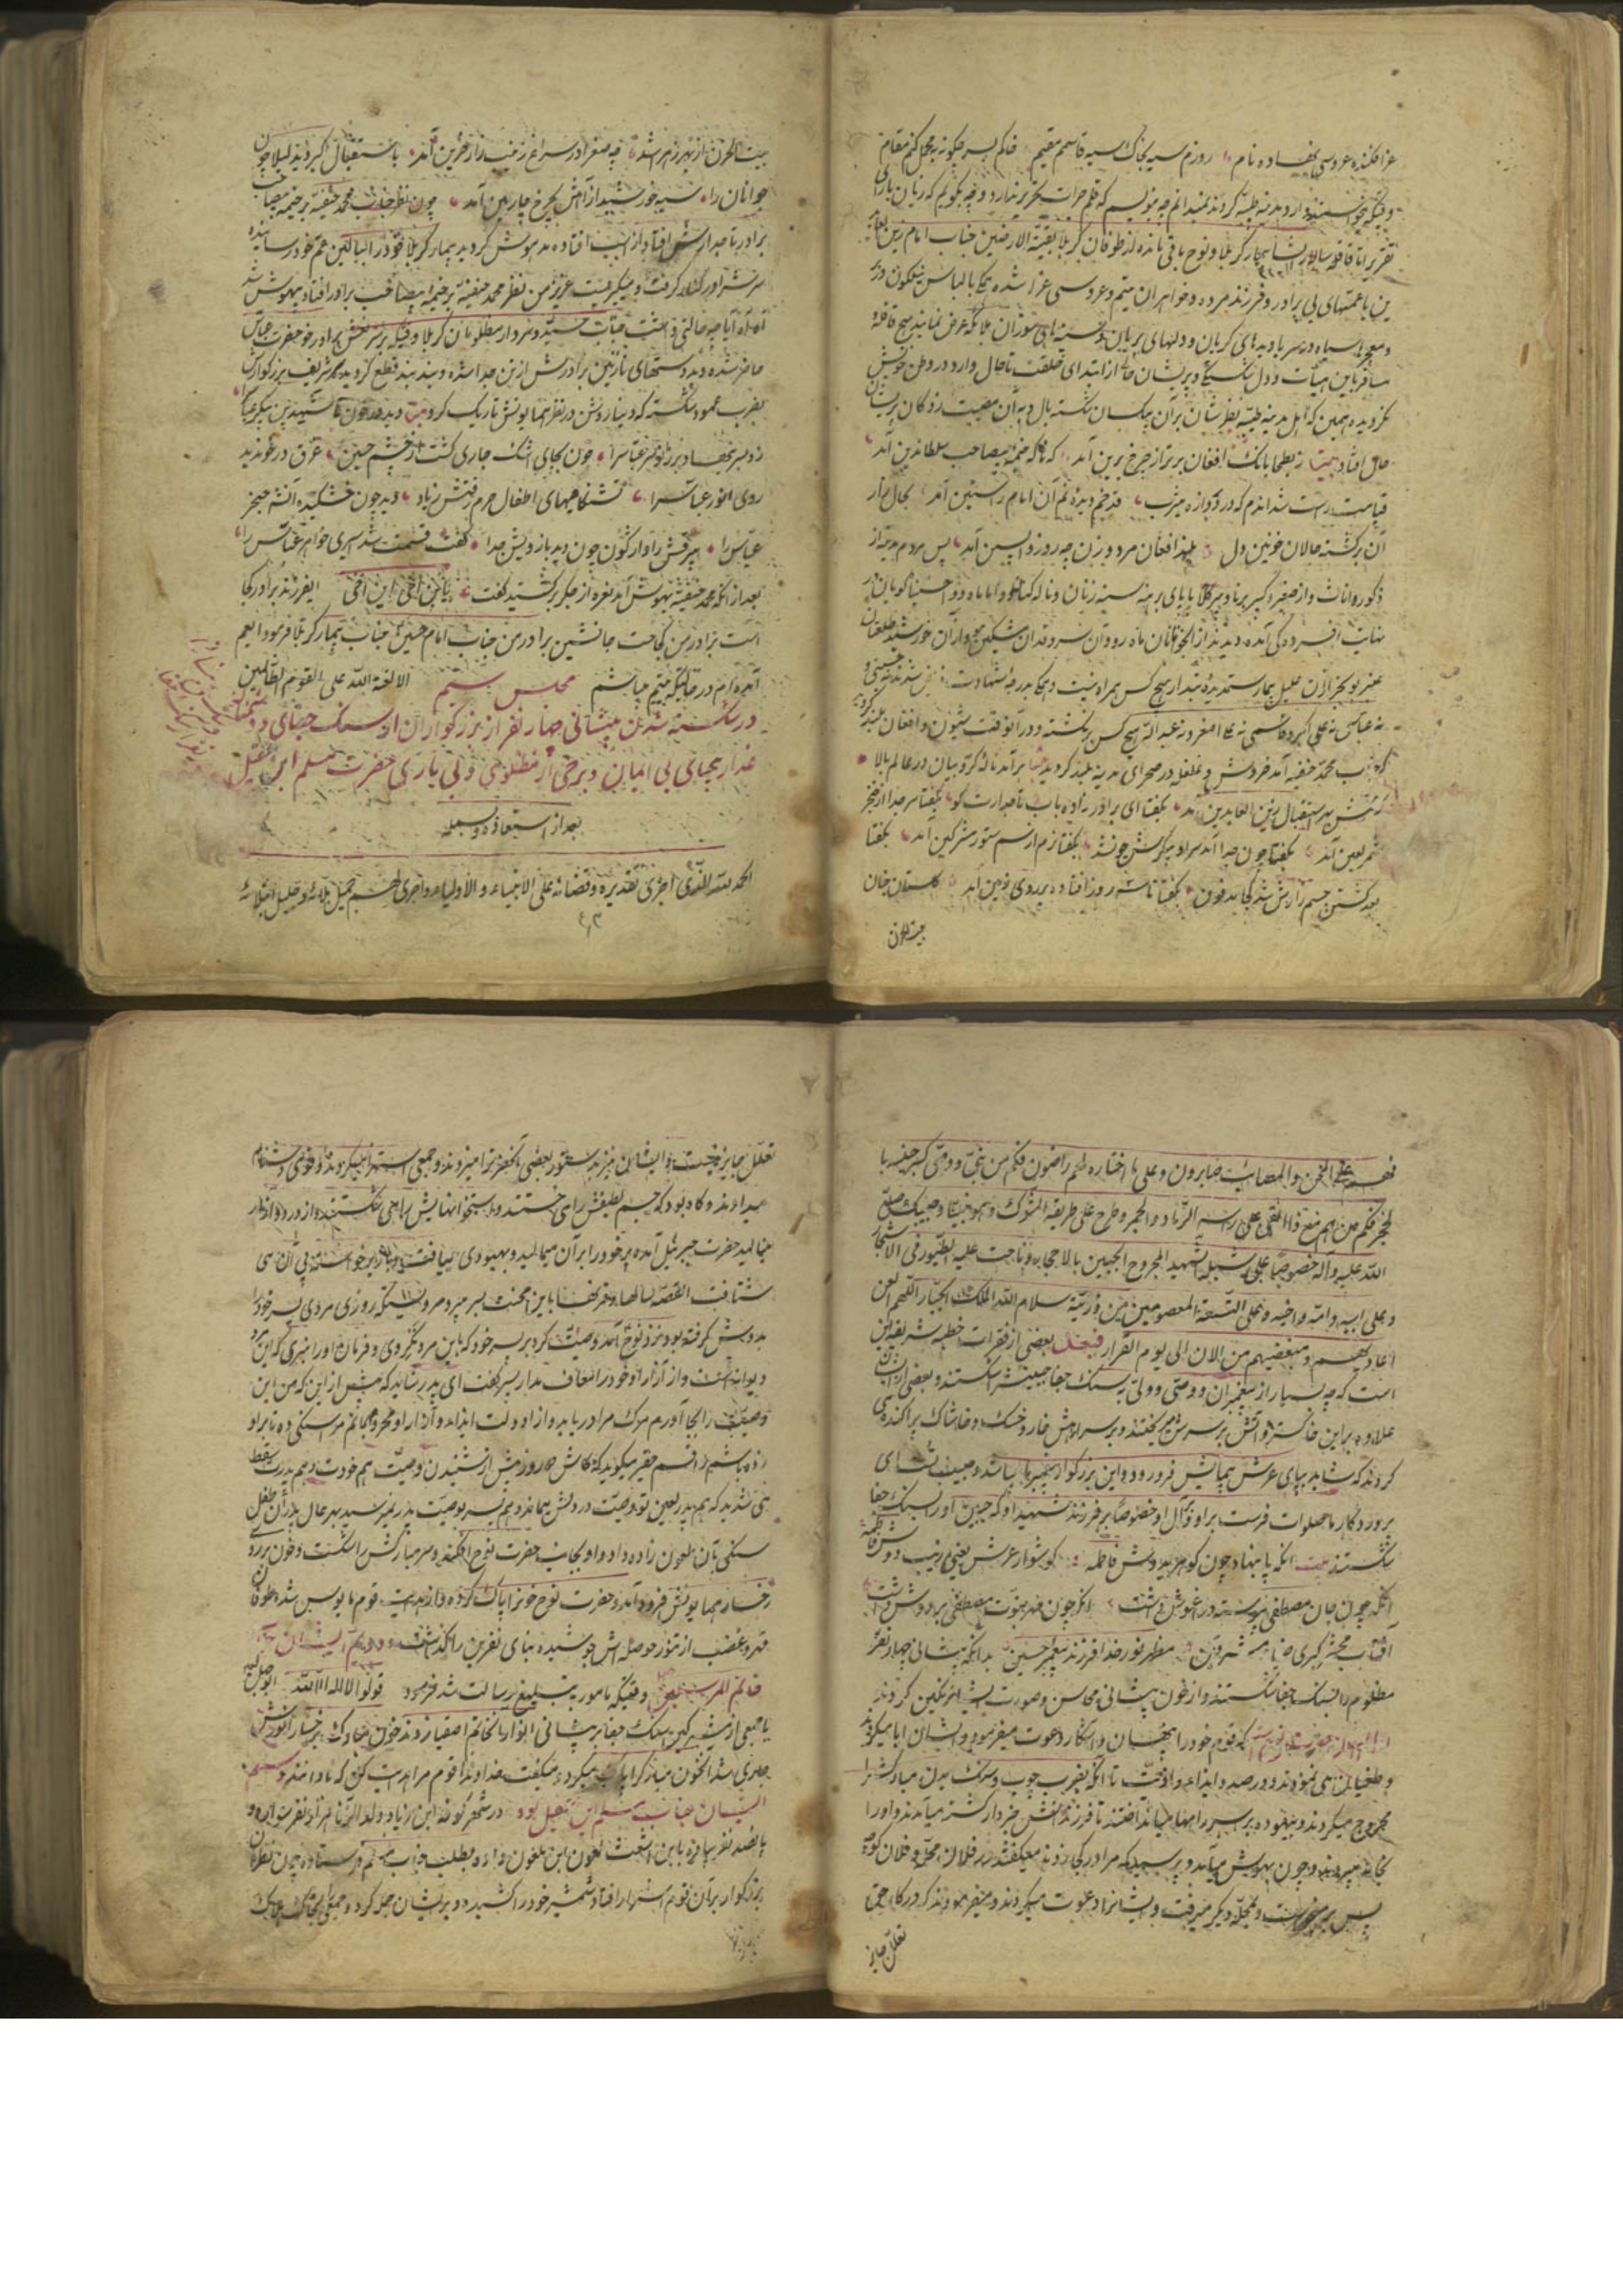 عزا فکنده عروسی نهاده نام روزم سیه بخاک سیه قاسمم مقیم
و چگونه وارد مدینه طیبه کردند نمیدانم چه نویسم که قلم جرات تحریر ندارد و چه بگویم که زبان یارای
تقریر تا قافله سالار بیمار کربلا و نوح باقی مانده از طوفان کربلا بقیة الارضین جناب امام زین العابد
ین با عمتهای بی برادر و فرزند مرده و خواهران یتیم و عروسی عزا شده با لباس نیلکون در بر
و معجرهای سیاه در سر با دیده های گریان و دلهای بریان و سینه های سوزان
مسافر باین هیأت و دل شکستگی و پریشان حالی از ابتدای خلقت تا حال وارد در وطن خویش
نگردیده همین که اهل مدینه طیبه نظرشان بر آن بیکسان شکسته بال و به آن مصیبت زدگان پریشان
حال افتاد بیت ز بطحا بانک افغان برتر از چرخ برین آمد که خیمه بیصاحب سلطان دین آمد
قیامت راست شد اندم که در دروازه یثرب آن امام راستین آمد بحال زار
آن برگشته حالان خونین دل بلند افغان مرد و زن چه روز واپسین آمد پس مردم مدینه از
ذکور و اناث و از صغیر و کبیر برنا و پیر با پای برهنه سینه زنان و ناله کنان
نهایت افسردگی آمده دیدند از آن جوانان ماه رو و آن سرو قدان
بجز از آن علیل بیمار ستمدیده تبدار هیچ کس همراه نیست و همگی بدرجه شهادت
نه عباس نه علی اکبر و قاسمی نه علی اصغر و نه عبدالله هیچ کس برنگشته و در آنوقت شیون و افغان بلند کردند
که جناب محمد حنفیه آمد خروش و غلغله در صحرای مدینه بلند گردید برآمد ناله کروبیان در عالم بالا
به استقبال زین العابدین آمد بگفتا ای برادر زاده باب تاجدارت کو بگفتا سر جدا از خنجر
شمر لعین آمد بگفتا چون جدا آمد سر او پیکرش چون شد بگفتا نرم از سم ستور مشرکین آمد بگفتا
بعد کشتن جسم زارش شد کجا مدفون بگفتا تا سه روز افتاده بر روی زمین آمد گلستان جنان
بیت الحزن
بیت الحزن از بهر زهرا شد چه صغرا در سراغ زینب زار حزین آمد باستقبال اکبر دید لیلا چون
جوانان را سیه خورشید از آهش بچرخ چارمین آمد چون نظر جناب محمد حنفیه بر خیمه بیصاحب
برادر تاجدارش افتاد از اسب افتاده مدهوش گردید بیمار کربلا خود را ببالین عم خود رسانیده
سرش را در کنار گرفت و میگریست عزیز من نظر محمد حنفیه بر خیمه بیصاحب برادر افتاد بیهوش شد
آه آه آیا چه حالتی داشت جناب سید و سردار مظلومان کربلا وقتیکه بر سر نعش برادر خود حضرت عباس
حاضر شده دید دستهای نازنین برادرش از تن جدا شده و بند بند قطع گردیده سر شریف بزرگوارش
بضرب عمود شکسته که دنیا روشن در نظر همایونش تاریک گردید بیت دید در خون تا شهیدین پیکر عباس را
زد بسر نهاد بر زانو سر عباس را خون بجای اشک جاری گشت از چشم حسین غرق در خون دید
روی انور عباس را تشنگامیهای اطفال حرم رفتش زیاد دید چون خشکیده آتشه حنجر
عباس را بیرقش را واژگون چون دید بازویش جدا گفت قسمت شد اسیری خواهر عباس را
بعد از آنکه محمد حنفیه بهوش آمد نعره از جگر برکشید گفت یابن اخی این اخی ای فرزند برادر کجا
است برادر من کجاست جانشین برادر من جناب امام حسین جناب بیمار کربلا فرمود ای عم
آمده ام در حالتیکه یتیم میباشم الا لعنة الله علی القوم الظالمین
مجلس سیم
در شکسته شدن پیشانی چهار نفر از بزرگواران از سنک جفای
غدار بیحیای بی ایمان و برخی از مظلومی و بی یاری حضرت مسلم ابن عقیل
بعد از استعاذه و بسمله
الحمد لله الذی اجری تقدیره و قضائه علی الانبیاء و الاولیاء و اجری لهم جمیل بلائه و جلیل ابتلائه
فهم علی المحن و المصائب صابرون و علی ما اختاره لهم راضون فکم من نبی و وصی کسر جنبیه با
لحجر فکم من
الله علیه و آله خصوصا علی شبله الشهید المجروح الجبین بالاحجار و ناحت علیه الطیور فی الاشجار
و علی ابیه و امه و اخیه و علی التسعة المعصومین من ذریته سلام الله الملک الجبار اللهم العن
اعادیهم و مبغضیهم من الان الی یوم القرار فبعد بعضی از فقرات خطبه شریفه این
است که چه بسیار از پیغمبران و وصی و ولی بسنک جفا جبینش شکستند و بعضی از ایشان
علاوه بر این خاکستر و آتش بر سرش میریختند و بر سر راهش خار و خسک و خاشاک پراکنده می
کردند که شاید بپای عرش پیمایش فرو رود و این بزرگوار پیغمبر ما میباشد و حبیب تست ای
پروردگار ما صلوات فرست بر او و آل او خصوصا بر فرزند شهید او که جبین او را بسنک جفا
شکستند بیت آنکه پا بنهاد چون گوهر بدوش فاطمه گوشوار عرش یعنی زینب دوش فاطمه
آنکه چون جان مصطفی پیوسته در آغوش داشت آنکه چون مهر نبوت مصطفی بر دوش داشت
آفتاب محشر کبری مظهر نور خدا فرزند پیغمبر حسین بدانکه پیشانی چهار نفر
مظلوم را بسنک جفا شکستند و از خون پیشانی محاسن و صورت ایشان رنگین کردند
اول ایشان حضرت نوح است که قوم خود را پنهان و آشکارا دعوت میفرمود و ایشان ابا میکردند
و طغیان می نمودند و در صدد ایذاء و اذیت تا آنکه بضرب چوب و سنک بدن مبارکش را
مجروح میکردند و بیهوده بر سر راهها میانداختند تا فرزندانش خبردار گشته میآمدند و او را
بخانه میبردند و چون بهوش میآمد و پرسید که مرا در کجا زدند میگفتند در فلان محله و فلان کوچه
پس بر میخاست و بمحله دیگر میرفت و ایشانرا دعوت میکردند و میفرمودند که در کار حق
تعلل جایز
تعلل جایز نیست و ایشان نیز بدستور بعضی آنحضرت را میزدند و جمعی استهزا میکردند و قومی دشنام
میدادند و گاه بود که جسم لطیفش را می خستند و استخوانهایش را می شکستند و از درد و آزار
مینالید حضرت جبرئیل آمده پر خود را بر آن میمالید و بهبودی مییافت و دیگر برخواسته پی آن می
شتافت القصه سالها و قرنها باین محنت بسر میبرد روزی مردی پسر خود را
بدوش گرفته بود نزد نوح آمد وصیت کرد بر پسر خود که باین مرد نگروی و فرمان او را نبری که این مرد
دیوانه است و از آزار او خود را معاف مدار پسر گفت ای پدر شاید که پیش از این که من این
وصیت را بجا آورم مرک مرا دریابد و از دولت ایذاء و آزار او محروم بمانم مرا سنگی ده تا بر او
زده باشم راقم حقیر میگوید که کاش ده روز پیش از شنیدن وصیت هم خودت و هم پدرت سقط
می شدید که هم پدر لعین تو وصیت در دلش میماند و هم پسر بوصیت پدر نمیرسید بهر حال پدر آن طفل
سنگی بآن ملعون زاده داد و او بجانب حضرت نوح افکند و سر مبارکش را شکست و خون بر روی
رخسار همایونش فرود آمد و حضرت نوح خون را پاک کرده و از هدایت قوم مأیوس شد و طوفان
قهر و غضب از تنور حوصله اش جوشیده بنای نفرین را گذاشت و دویم ایشان
خاتم المرسلین وقتیکه مأمور به تبلیغ رسالت شد فرمود قولوا لا اله الا الله ابوجهل لعین
با جمعی از مشرکین سنک جفا بر پیشانی انوار خاتم اصفیا زدند خون مبارک بر رخسار انورش
جاری شد آنخون مبارک را پاک میکرد و میگفت خداوندا قوم مرا هدایت کن که نادانند و سیم
ایشان جناب مسلم ابن عقیل بود در شهر کوفه ابن زیاد ولد الزنا
پانصد نفر پیاده باین اشعث ملعون ابن ملعون داده بطلب جناب مسلم فرستاد چون نظر آن
بزرگوار بر آن قوم اشرار افتاد شمشیر خود را کشید و بر ایشان حمله کرد و جمعی را بخاک هلاک